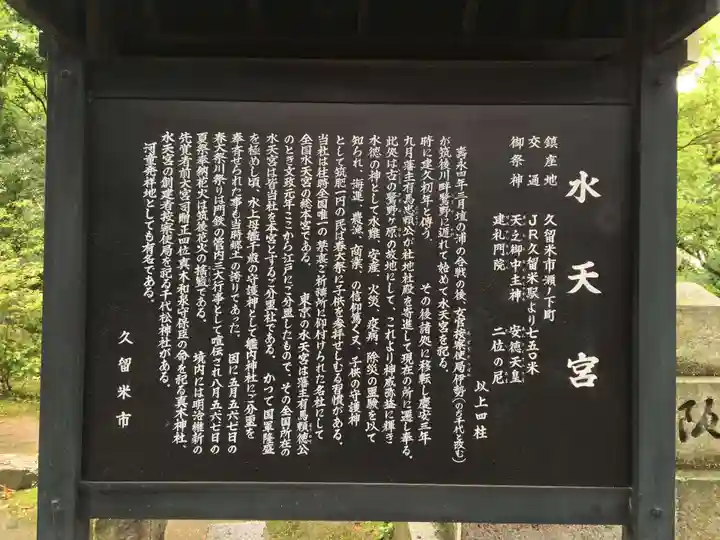 水天宮
鎮座地　久留米市瀬ノ下町
交通　JR久留米駅より七五〇米
御祭神　天之御中主神　安徳天皇
建礼門院　二位の尼
以上四柱
寿永四年三月壇の浦の合戦の後、女官按察使局伊勢(のち千代と改む)
が筑後川畔鷺野に遁れて始めて水天宮を祀る。
時に建久初年と傳う。　その後諸処に移転し慶安三年
九月藩主有馬忠頼公が社地社殿を寄進して現在の所に遷し奉る。
此処は古の鷺野ヶ原の故地にして、これより神威弥益に輝き
水徳の神として水難、安産、火災、疫病、除災の霊験を以て
知られ、海運、農漁、商業、の信仰篤く又、子供の守護神
として筑肥一円の氏は春大祭に子供を参拝せしむる習慣がある。
当社は往時全国唯一の禁裏ご祈祷所に仰付けられた名社にして
全国水天宮の総本宮である。　東京の水天宮は藩主有馬頼徳公
のとき文政元年ここから江戸にご分霊したもので、その全国所在の
水天宮は皆当社を本宮とするご分霊社である。　かつて国軍隆盛
を極めし頃、水上母艦千歳の守護神として艦内神社にご分霊を
奉斎せられた事も当時郷土の誇りであった。　因に五月五六七日の
春大祭川祭りは門鉄の管内三大行事として喧伝され八月五六七日の
夏祭奉納花火は筑後花火の権威である。　境内には明治維新の
先覚者前大宮司贈正四位真木和泉守保臣の命を祀る真木神社、
水天宮の創建者按察使局を祀る千代松神社がある。
河童発祥地としても有名である。
久留米市